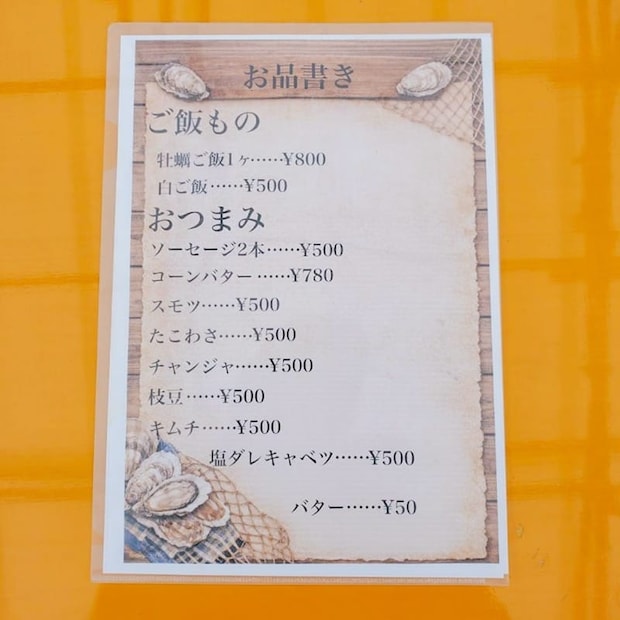 お品書き
ご飯もの
牡蠣ご飯1ヶ……¥800
白ご飯……¥500
おつまみ
ソーセージ2本……¥500
コーンバター……¥780
スモツ……¥500
たこわさ……¥500
チャンジャ……¥500
枝豆……¥500
キムチ……¥500
塩ダレキャベツ……¥500
バター……¥50